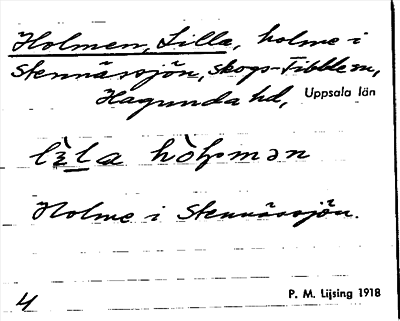 Holmen, Lilla, holme i
Stennässjön, Skogs-Tibble sn,
Hagunda hd, Uppsala län
Holme i Stennässjön.
4
P. M. Lijsing 1918